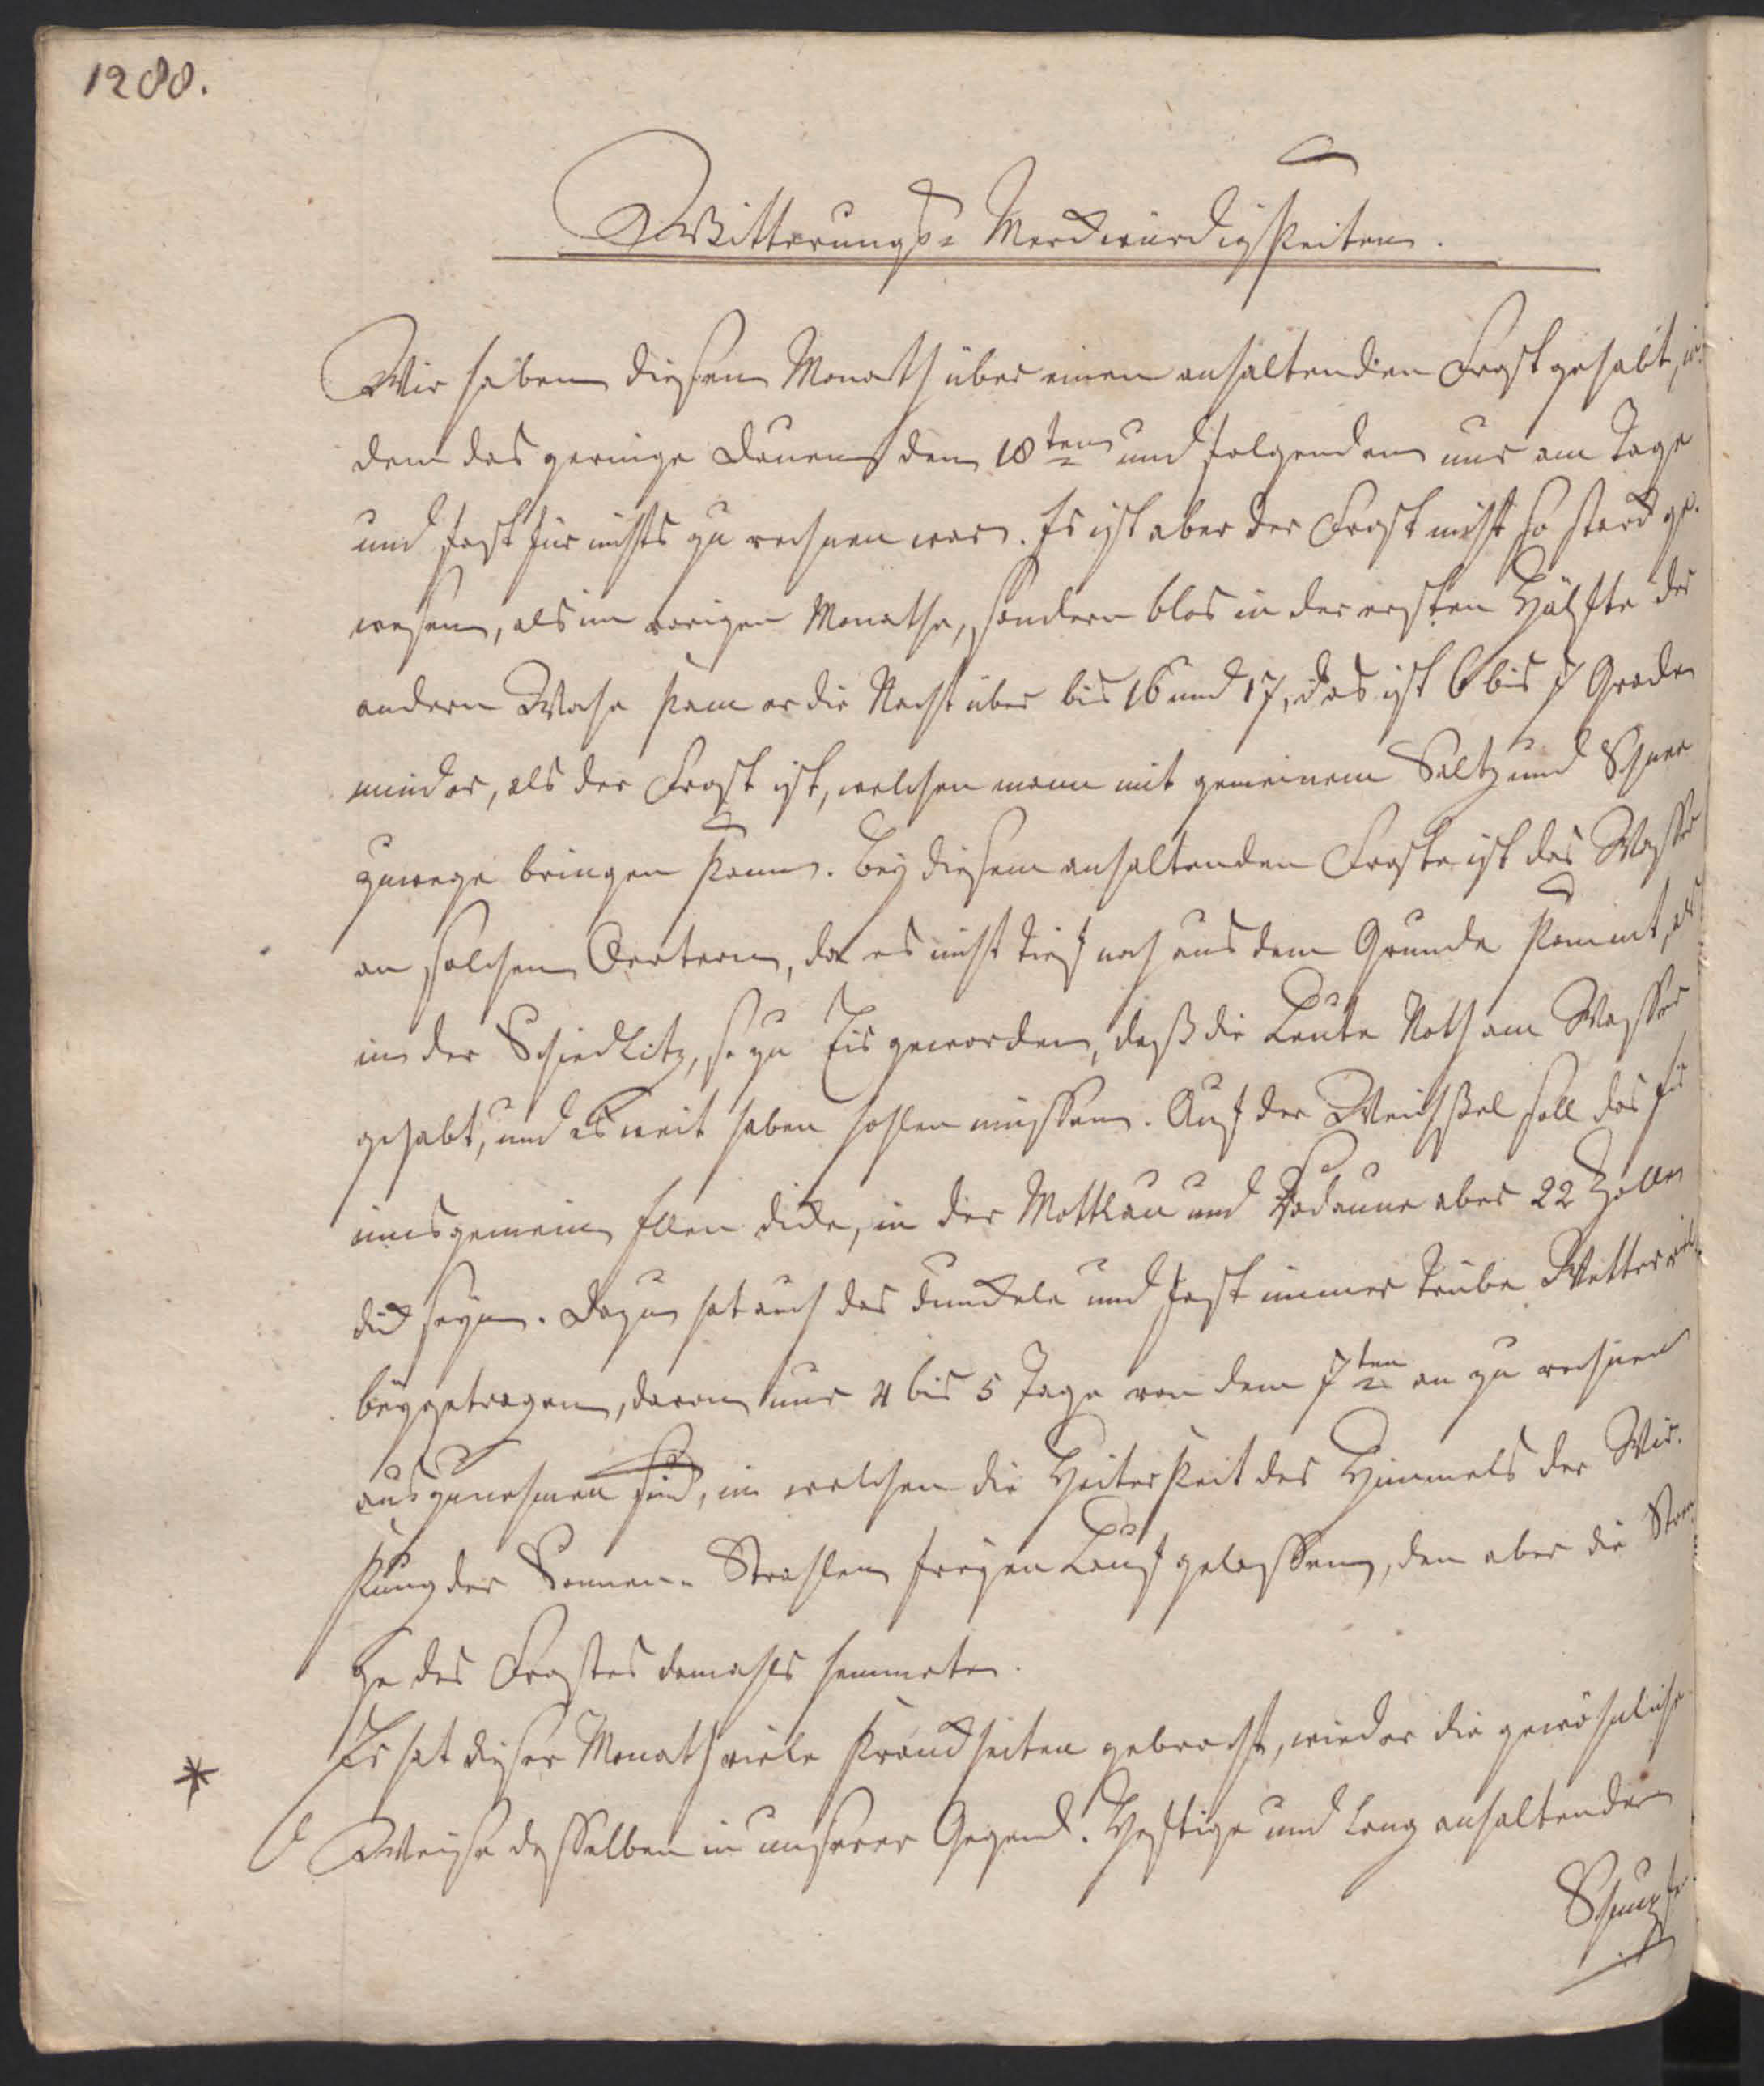 1288.
Witterungs-Merckwürdigkeiten.
Wir haben diesen Monath über einen anhaltenden Frost gehabt, in
dem das geringe Dauen den 18ten und folgenden nur am Tage
und fast für nichts zu rechnen war. Es ist aber der Frost nicht so starck ge-
wesen, als im vorigen Monathe, sondern blos in der ersten Hälfte der
andern Woche kam er die Nacht über bis 16 und 17, das ist 6 bis 7 Grade
minder, als der Frost ist, welchen mann mit gemeinem Saltz und Schnee
zuwege bringen kann. Bey diesem anhaltenden Froste ist das Wasser
an solchen Oertern, da es nicht tief noch aus dem Grunde kommt, als
in der Schiedlitz, so zu Eis geworden, daß die Leute Noth am Wasser
gehabt, und es weit haben hohlen müssen. Auf der Weichßel soll das Eis
insgemein Ellen dicke, in der Mottlau und Radaune aber 22 Zolle
dick seyn. Dazu hat auch das dunckele und fast immer trübe Wetter viel
beygetragen, davon nur 4 bis 5 Tage von dem 7ten an zu rechnen
auszunehmen sind, in welchen die Heiterkeit des Himmels der Wir-
kung der Sonnen-Strahlen freyen Lauf gelassen, den aber die Stren
ge des Frostes damahls hemmete.
* Es hat dieser Monath viele Kranckheiten gebracht, wieder die gewöhnliche
Weise desselben in unserer Gegend. Heftige und lang anhaltende
Schnupfen